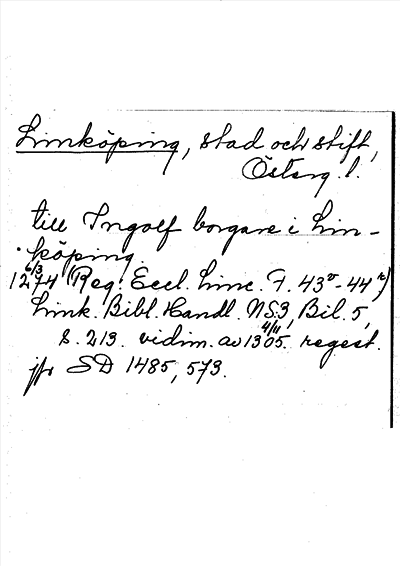 Linköping, stad och stift,
Österg. l.
till Ingolf borgare i Lin-
köping.
6/3
1274 (Reg. Eccl. Linc. F. 43v-44r)
Link. Bibl. Handl. NS.3, Bil. 5,
4/11
s. 213. vidim. av 1305. regest.
jfr SD 1485, 573.